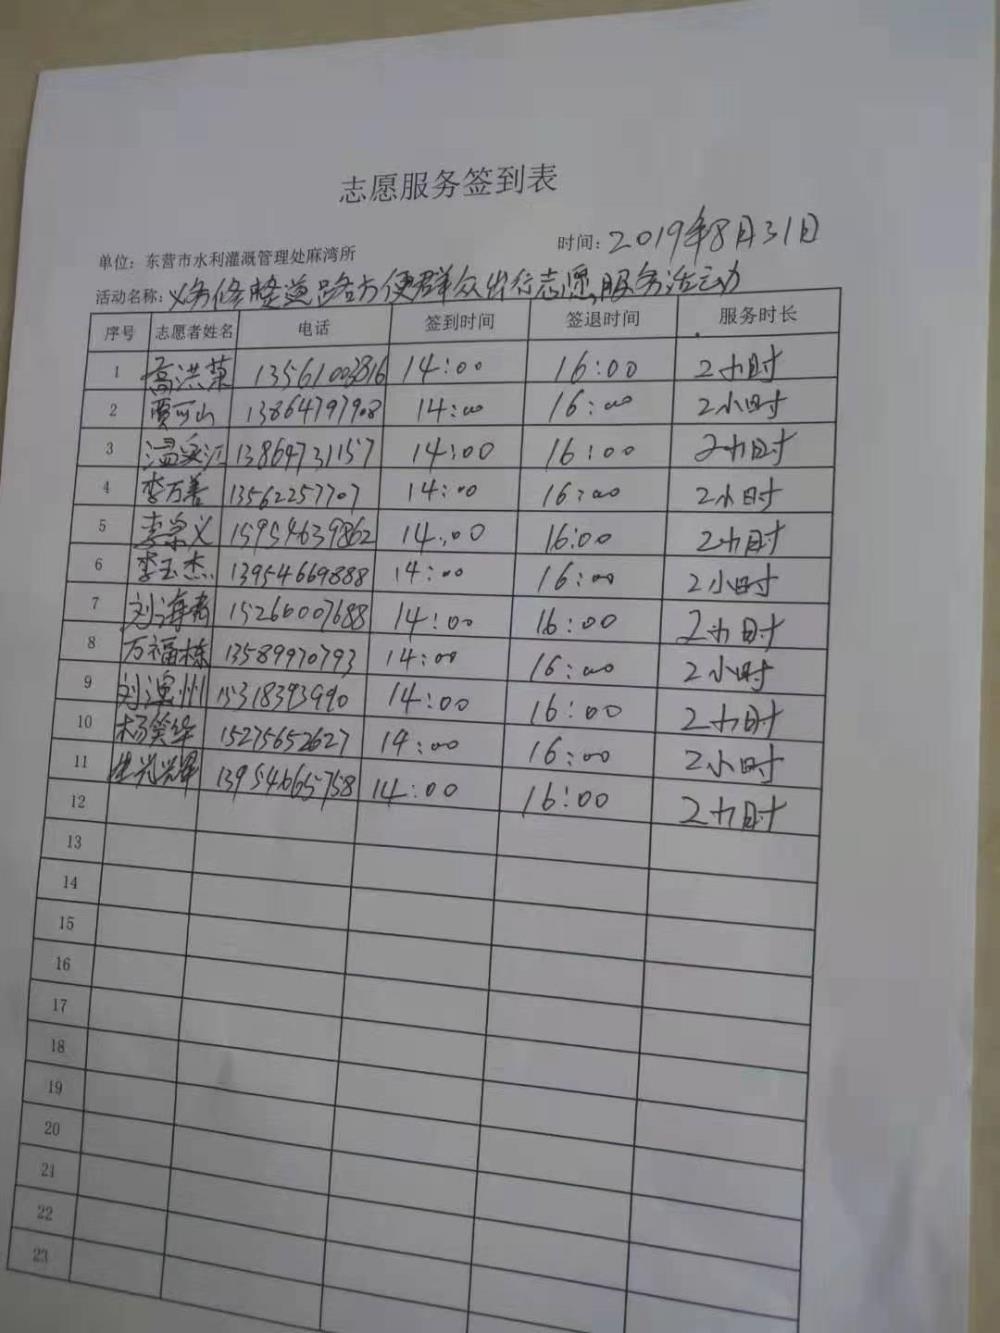 志愿服务签到表
单位：东营市水利灌溉管理处麻湾所 时间：2019年8月31日
活动名称：义务修整道路方便群众出行志愿服务活动
序号 志愿者姓名 电话 签到时间 签退时间 服务时长
1 高洪菜 13561003816 14:00 16:00 2小时
2 贾可山 13864797908 14:00 16:00 2小时
3 13864731157 14:00 16:00 2小时
4 李万善 13562257707 14:00 16:00 2小时
5 李荣义 15954639862 14:00 16:00 2小时
6 李玉杰 13954669888 14:00 16:00 2小时
7 15266007688 14:00 16:00 2小时
8 万福栋 13589970793 14:00 16:00 2小时
9 15318393990 14:00 16:00 2小时
10 15275652627 14:00 16:00 2小时
11 13954665758 14:00 16:00 2小时
12
13
14
15
16
17
18
19
20
21
22
23